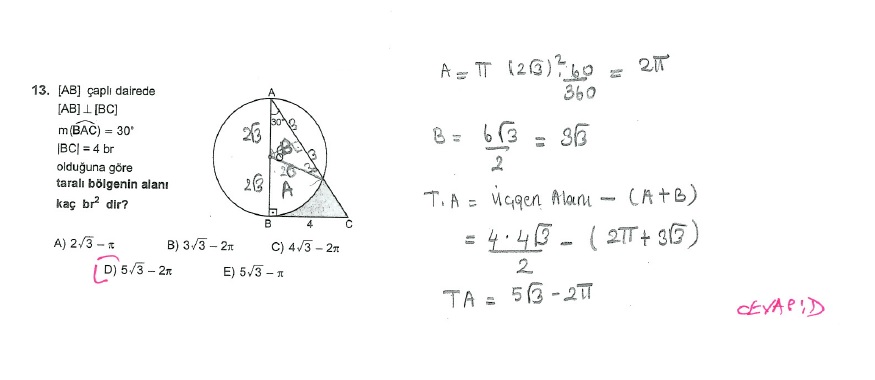 13. [AB] çaplı dairede
[AB] ⊥ [BC]
m(BAC) = 30°
|BC| = 4 br
olduğuna göre
taralı bölgenin alanı
kaç br² dir?
A
30°
3
2√3
B
3
2√3
A
B
4
C
A) 2√3 – π B) 3√3 – 2π C) 4√3 – 2π
D) 5√3 – 2π E) 5√3 – π
A = π (2√3)². 60/360 = 2π
B = 6√3/2 = 3√3
T.A = Üçgen Alanı – (A+B)
= 4.4√3/2 – (2π + 3√3)
TA = 5√3 - 2π
CEVAP: D